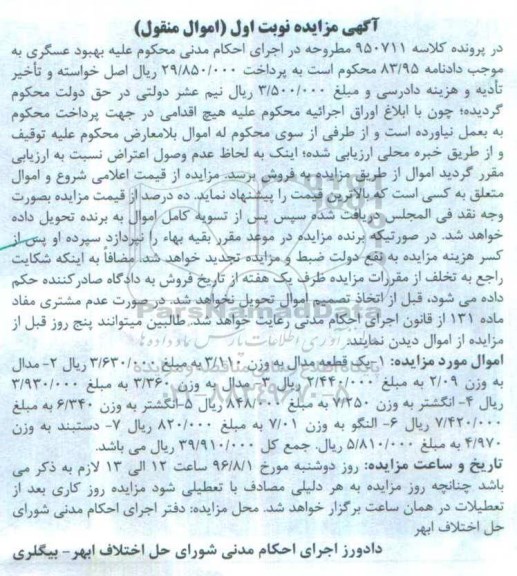 آگهی مزایده نوبت اول (اموال منقول)
در پرونده کلاسه ۹۵۰۷۱۱ مطروحه در اجرای احکام مدنی محکوم علیه بهبود عسگری به
موجب دادنامه ۸۳/۹۵ محکوم است به پرداخت ۲۹/۸۵۰/۰۰۰ ریال اصل خواسته و تأخیر
تأدیه و هزینه دادرسی و مبلغ ۳/۵۰۰/۰۰۰ ریال نیم عشر دولتی در حق دولت محکوم
گردیده؛ چون با ابلاغ اوراق اجرائیه محکوم علیه هیچ اقدامی در جهت پرداخت محکوم
به بعمل نیاورده است و از طرفی از سوی محکوم له اموال بلامعارض محکوم علیه توقیف
و از طریق خبره محلی ارزیابی شده؛ اینک به لحاظ عدم وصول اعتراض نسبت به ارزیابی
مقرر گردید اموال از طریق مزایده به فروش برسد. مزایده از قیمت اعلامی شروع و اموال
متعلق به کسی است که بالاترین قیمت را پیشنهاد نماید. ده درصد از قیمت مزایده بصورت
وجه نقد فی المجلس دریافت شده سپس پس از تسویه کامل اموال به برنده تحویل داده
خواهد شد. در صورتیکه برنده مزایده در موعد مقرر بقیه بهاء را نپردازد سپرده او پس از
کسر هزینه مزایده به نفع دولت ضبط و مزایده تجدید خواهد شد. مضافاً به اینکه شکایت
راجع به تخلف از مقررات مزایده ظرف یک هفته از تاریخ فروش به دادگاه صادرکننده حکم
داده می شود، قبل از اتخاذ تصمیم اموال تحویل نخواهد شد. در صورت عدم مشتری مفاد
ماده ۱۳۱ از قانون اجرای احکام مدنی رعایت خواهد شد. طالبین میتوانند پنج روز قبل از
مزایده از اموال دیدن نمایند.
اموال مورد مزایده: ۱-یک قطعه مدال به وزن ۳/۱۱۰ به مبلغ ۳/۶۳۰/۰۰۰ ریال ۲- مدال
به وزن ۲/۰۹ به مبلغ ۲/۴۴۰/۰۰۰ ریال ۳- مدال به وزن ۳/۳۶۰ به مبلغ ۳/۹۳۰/۰۰۰
ریال ۴- انگشتر به وزن ۷/۲۵۰ به مبلغ ۸۴۸/۰۰۰ ریال ۵-انگشتر به وزن ۶/۳۴۰ به مبلغ
۷/۴۲۰/۰۰۰ ریال ۶- النگو به وزن ۷/۰۱ به مبلغ ۸۲۰/۰۰۰ ریال ۷- دستبند به وزن
۴/۹۷۰ به مبلغ ۵/۸۱۰/۰۰۰ ریال. جمع کل ۳۹/۹۱۰/۰۰۰ ریال می باشد.
تاریخ و ساعت مزایده: روز دوشنبه مورخ ۹۶/۸/۱ ساعت ۱۲ الی ۱۳ لازم به ذکر می
باشد چنانچه روز مزایده به هر دلیلی مصادف با تعطیلی شود مزایده روز کاری بعد از
تعطیلات در همان ساعت برگزار خواهد شد. محل مزایده: دفتر اجرای احکام مدنی شورای
حل اختلاف ابهر
دادورز اجرای احکام مدنی شورای حل اختلاف ابهر- بیگلری
ParsNamadData